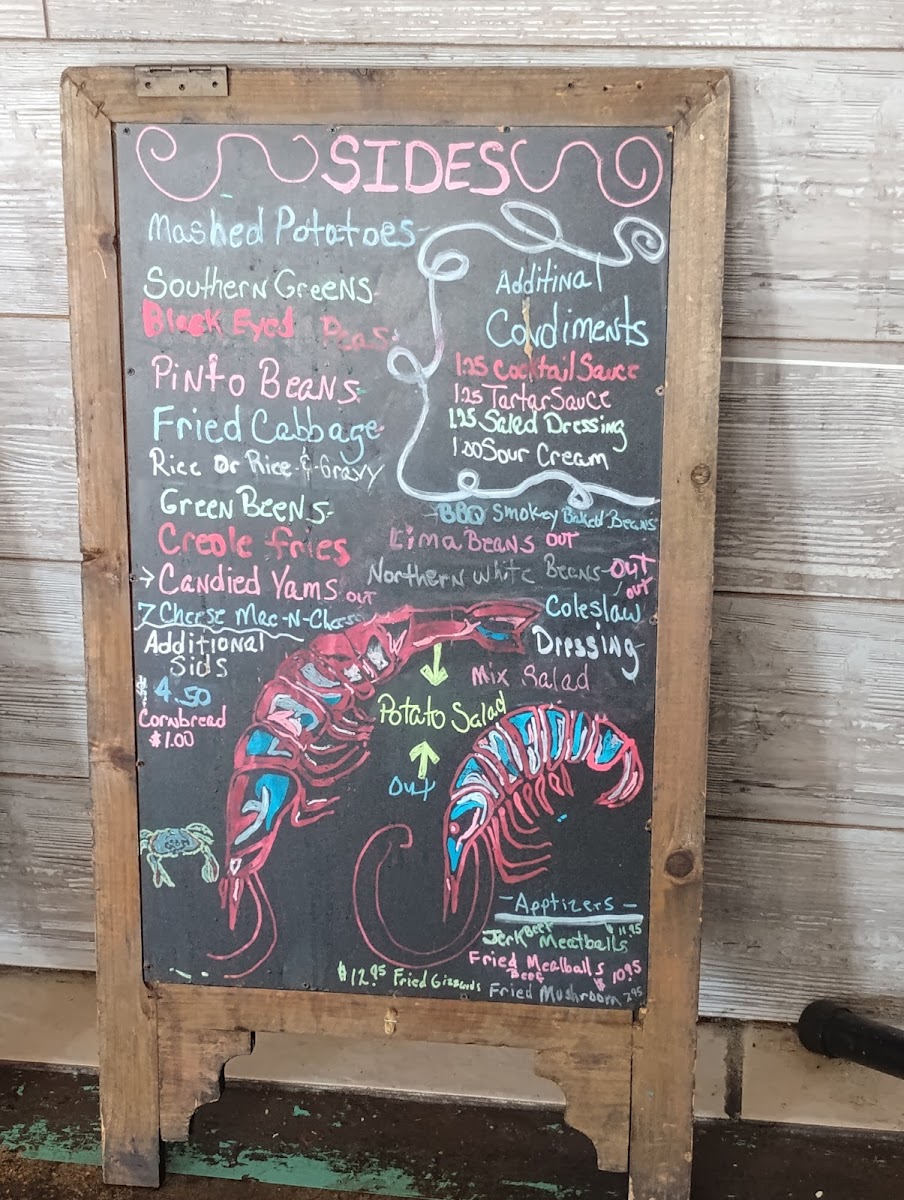 SIDES
Mashed Potatoes
Southern Greens
Black Eyed Peas
Pinto Beans
Fried Cabbage
Rice Or Rice & Gravy
Green Beens
Creole fries
→ Candied Yams OUT
7 Cheese Mac-N-Cheese
Additional
Sids
$4.50
Cornbread
$1.00
Additinal
Condiments
1.25 Cocktail Sauce
1.25 Tartar Sauce
1.25 Saled Dressing
1.00 Sour Cream
BBQ Smokey Baked Beans
Lima Beans OUT
Northern White Beans - OUT
Coleslaw OUT
Dressing
Mix Salad
Potato Salad
Out
- Apptizers -
Jerk Beef Meatballs $11.95
Fried Mealballs
Beef $10.95
$12.95 Fried Gizzards
Fried Mushroom 7.95